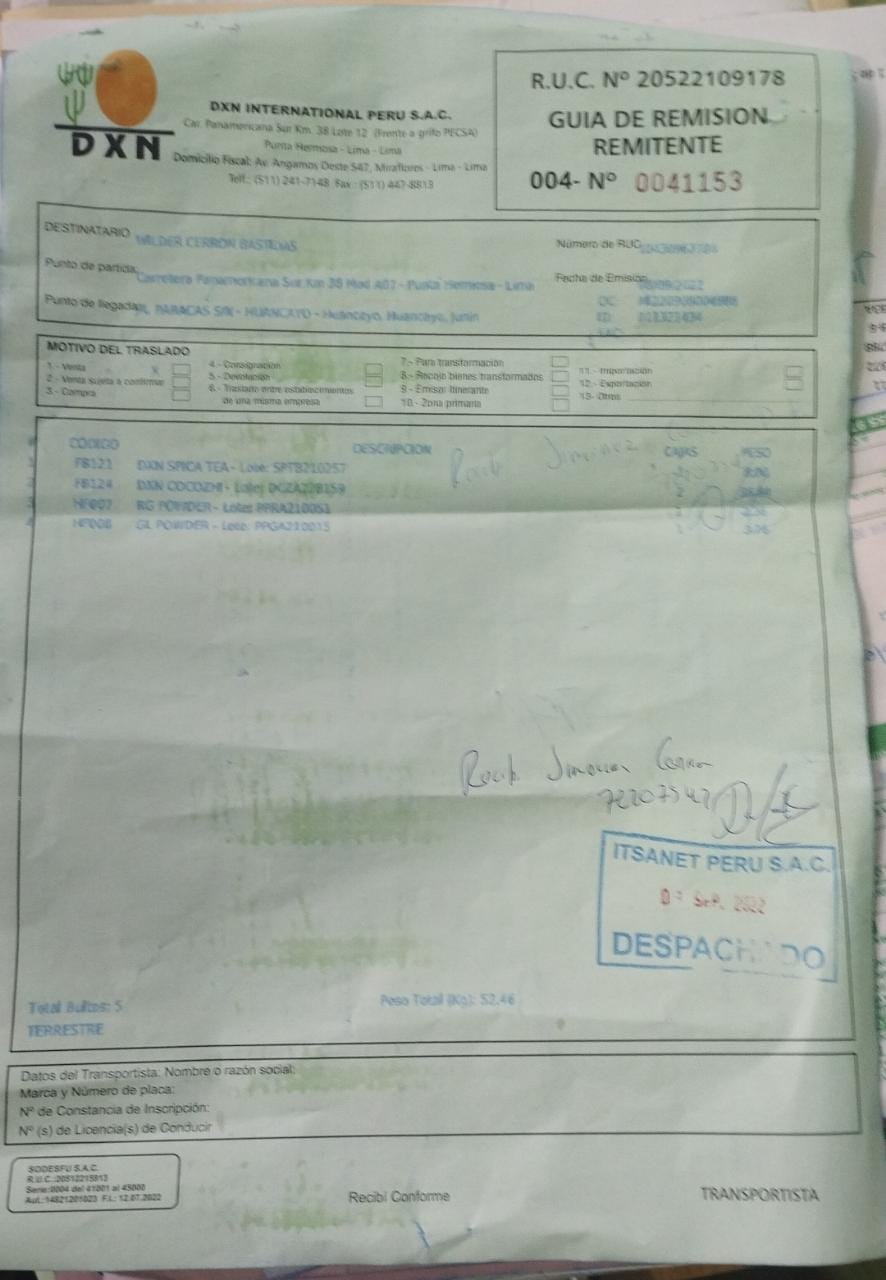 DXN
DXN INTERNATIONAL PERU S.A.C.
Car. Panamericana Sur Km. 38 Lote 12 (Frente a grifo PECSA)
Punta Hermosa - Lima - Lima
Domicilio Fiscal: Av. Angamos Oeste 547, Miraflores - Lima - Lima
Telf.: (511) 241-7148 Fax.: (511) 447-8813
R.U.C. Nº 20522109178
GUIA DE REMISION
REMITENTE
004- Nº 0041153
DESTINATARIO WILDER CERRON BASTIDAS
Número de RUC
Punto de partida: Carretera Panamericana Sur Km 38 Mod A07 - Punta Hermosa - Lima
Fecha de Emisión 2022
Punto de llegada: PARACAS S/N - HUANCAYO - Huancayo, Huancayo, Junin
OC:
ID:
MOTIVO DEL TRASLADO
1 - Venta X
2 - Venta sujeta a confirmar
3 - Compra
4 - Consignación
5 - Devolución
6 - Traslado entre establecimientos
de una misma empresa
7 - Para transformación
8 - Recojo bienes transformados
9 - Emisor Itinerante
10 - Zona primaria
11 - Importación
12 - Exportación
13- Otros
CODIGO DESCRIPCION CAJAS PESO
1 FB121 DXN SPICA TEA - Lote: SPTB210257
2 FB124 DXN COCOZHI - Lote: DGZA22B159 2
3 HF007 RG POWDER - Lote: PPRA210051
4 HF008 GL POWDER - Lote: PPGA210015 1
72207542
ITSANET PERU S.A.C.
SEP. 2022
DESPACHADO
Total Bultos: 5
Peso Total (Kg): 52.46
TERRESTRE
Datos del Transportista: Nombre o razón social:
Marca y Número de placa:
Nº de Constancia de Inscripción:
Nº (s) de Licencia(s) de Conducir
SODESFU S.A.C.
R.U.C.:20512215813
Serie:0004 del 41001 al 45000
Aut.:14821201023 F.I.: 12.07.2022
Recibí Conforme
TRANSPORTISTA